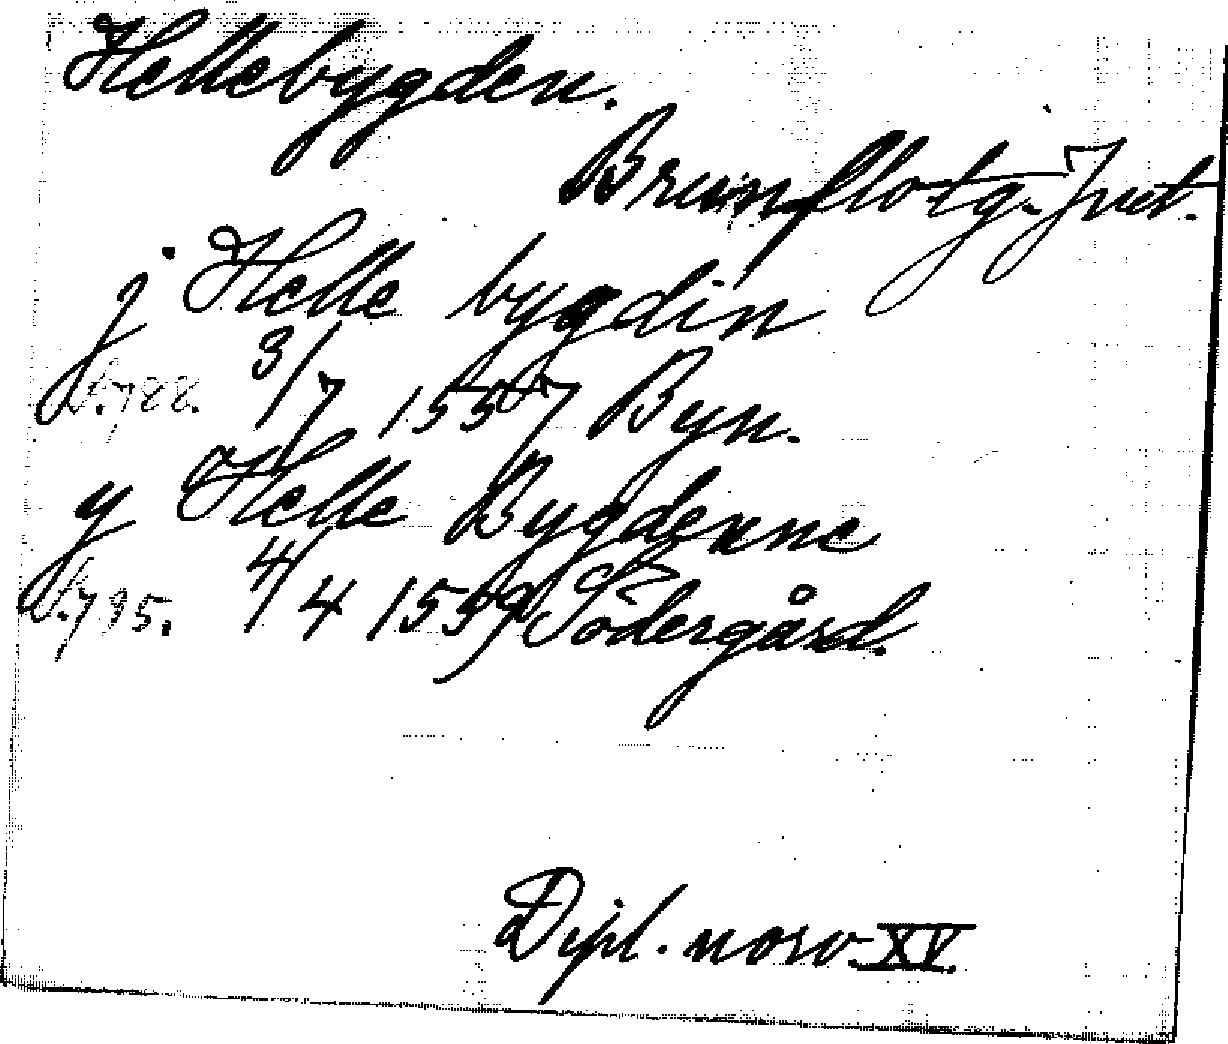 Hellebygden.
Brunflo tg. Jmt.
j Helle bygdin
s. 788. 3/7 1557 Byn.
y Helle Bygdenne
s. 795. 4/4 1559 Södergård.
Dipl. norv. XV.